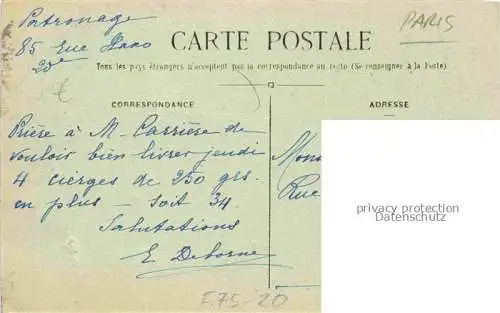 Patronage
85 Rue Haxo
20e
PARIS
CARTE POSTALE
Tous les pays étrangers n'acceptent pas la correspondance au recto (Se renseigner à la Poste)
CORRESPONDANCE
ADRESSE
Prière à M. Carrière de
vouloir bien livrer jeudi
4 cierges de 250 grs.
en plus - soit 34
Salutations
E Deborne
Mons
Rue
privacy protection
Datenschutz
F75-20